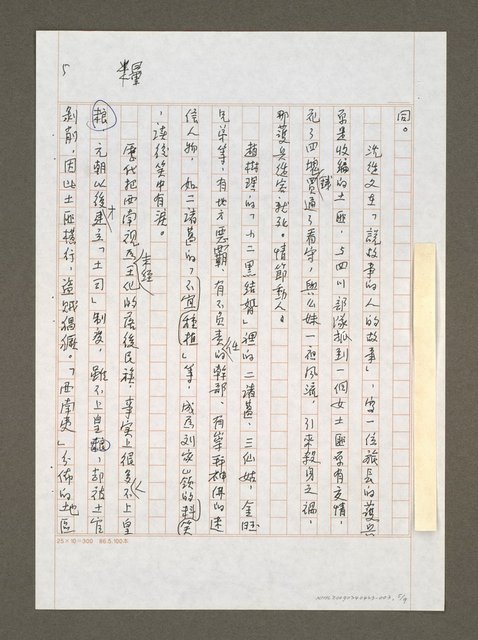 糧
5
同。
沈從文在「說故事的人的故事」,寫一位旅長的護兵
原是收編的土匪,與四川部隊抓到一個女土匪原有交情,
花了四塊錢買通了看守,與么妹一夜風流,引來殺身之禍,
那護兵從容就死。情節動人。
趙樹理的「小二黑結婚」裡的二諸葛、三仙姑,金旺
兄弟等,有地方惡霸,有不負責任的幹部,有崇拜神佛的迷
信人物,如二諸葛的「不宜種植」等,成為劉家山嶺的笑料
,讀後笑中有淚。
歷代把西南視為未經王化的落後民族,事實上很多不上皇
糧
元朝以後才建立「土司」制度,雖不上皇糧,却被土官
剝削,因此土匪橫行,盜賊猖獗。「西南夷」分佈的地區
25×10=300 86.5.100本
NMTL20090240423-003, 5/9